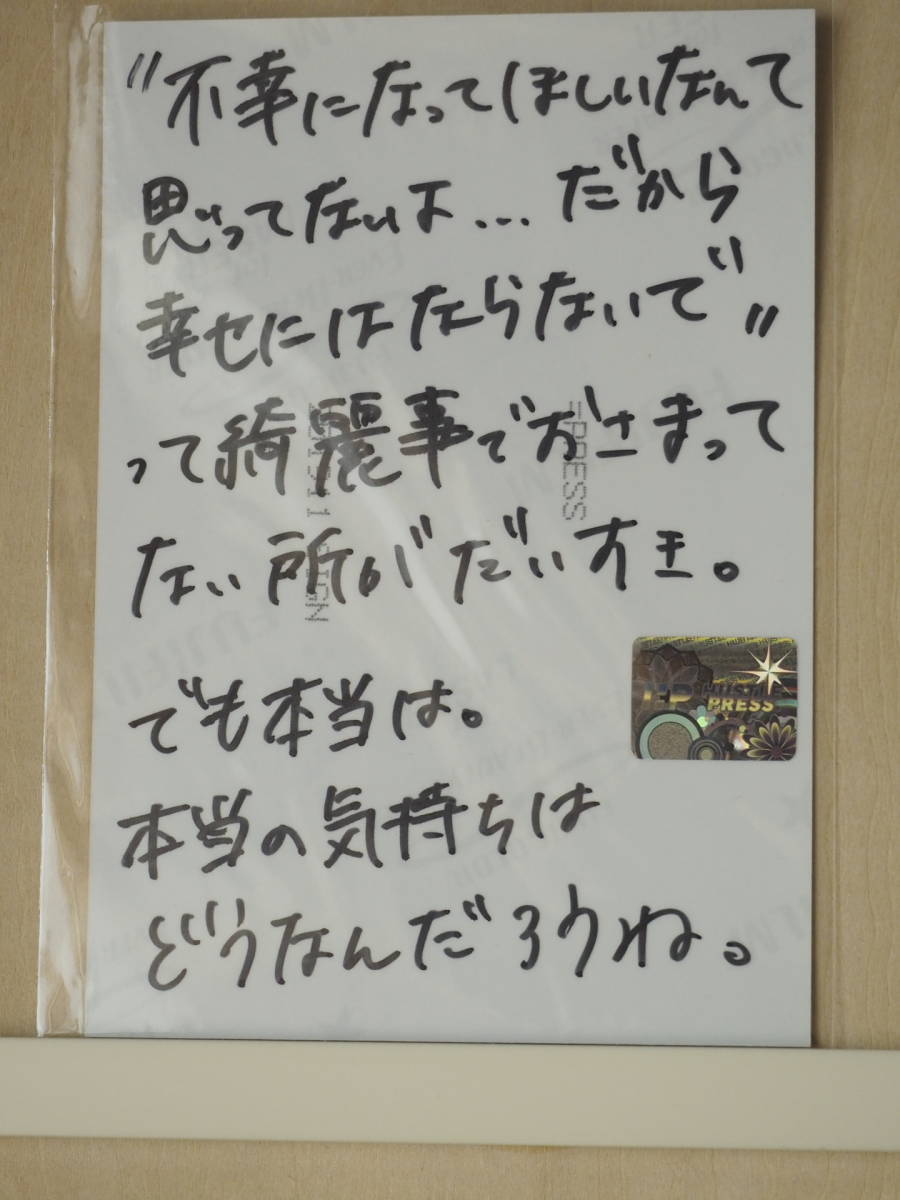 "不幸になってほしいなんて
思ってないよ...だから
幸せにはならないで"
って綺麗事でおさまって
ない所がだいすき。
でも本当は。
本当の気持ちは
どうなんだろうね。
HP HUSTLE
PRESS
=PRESS